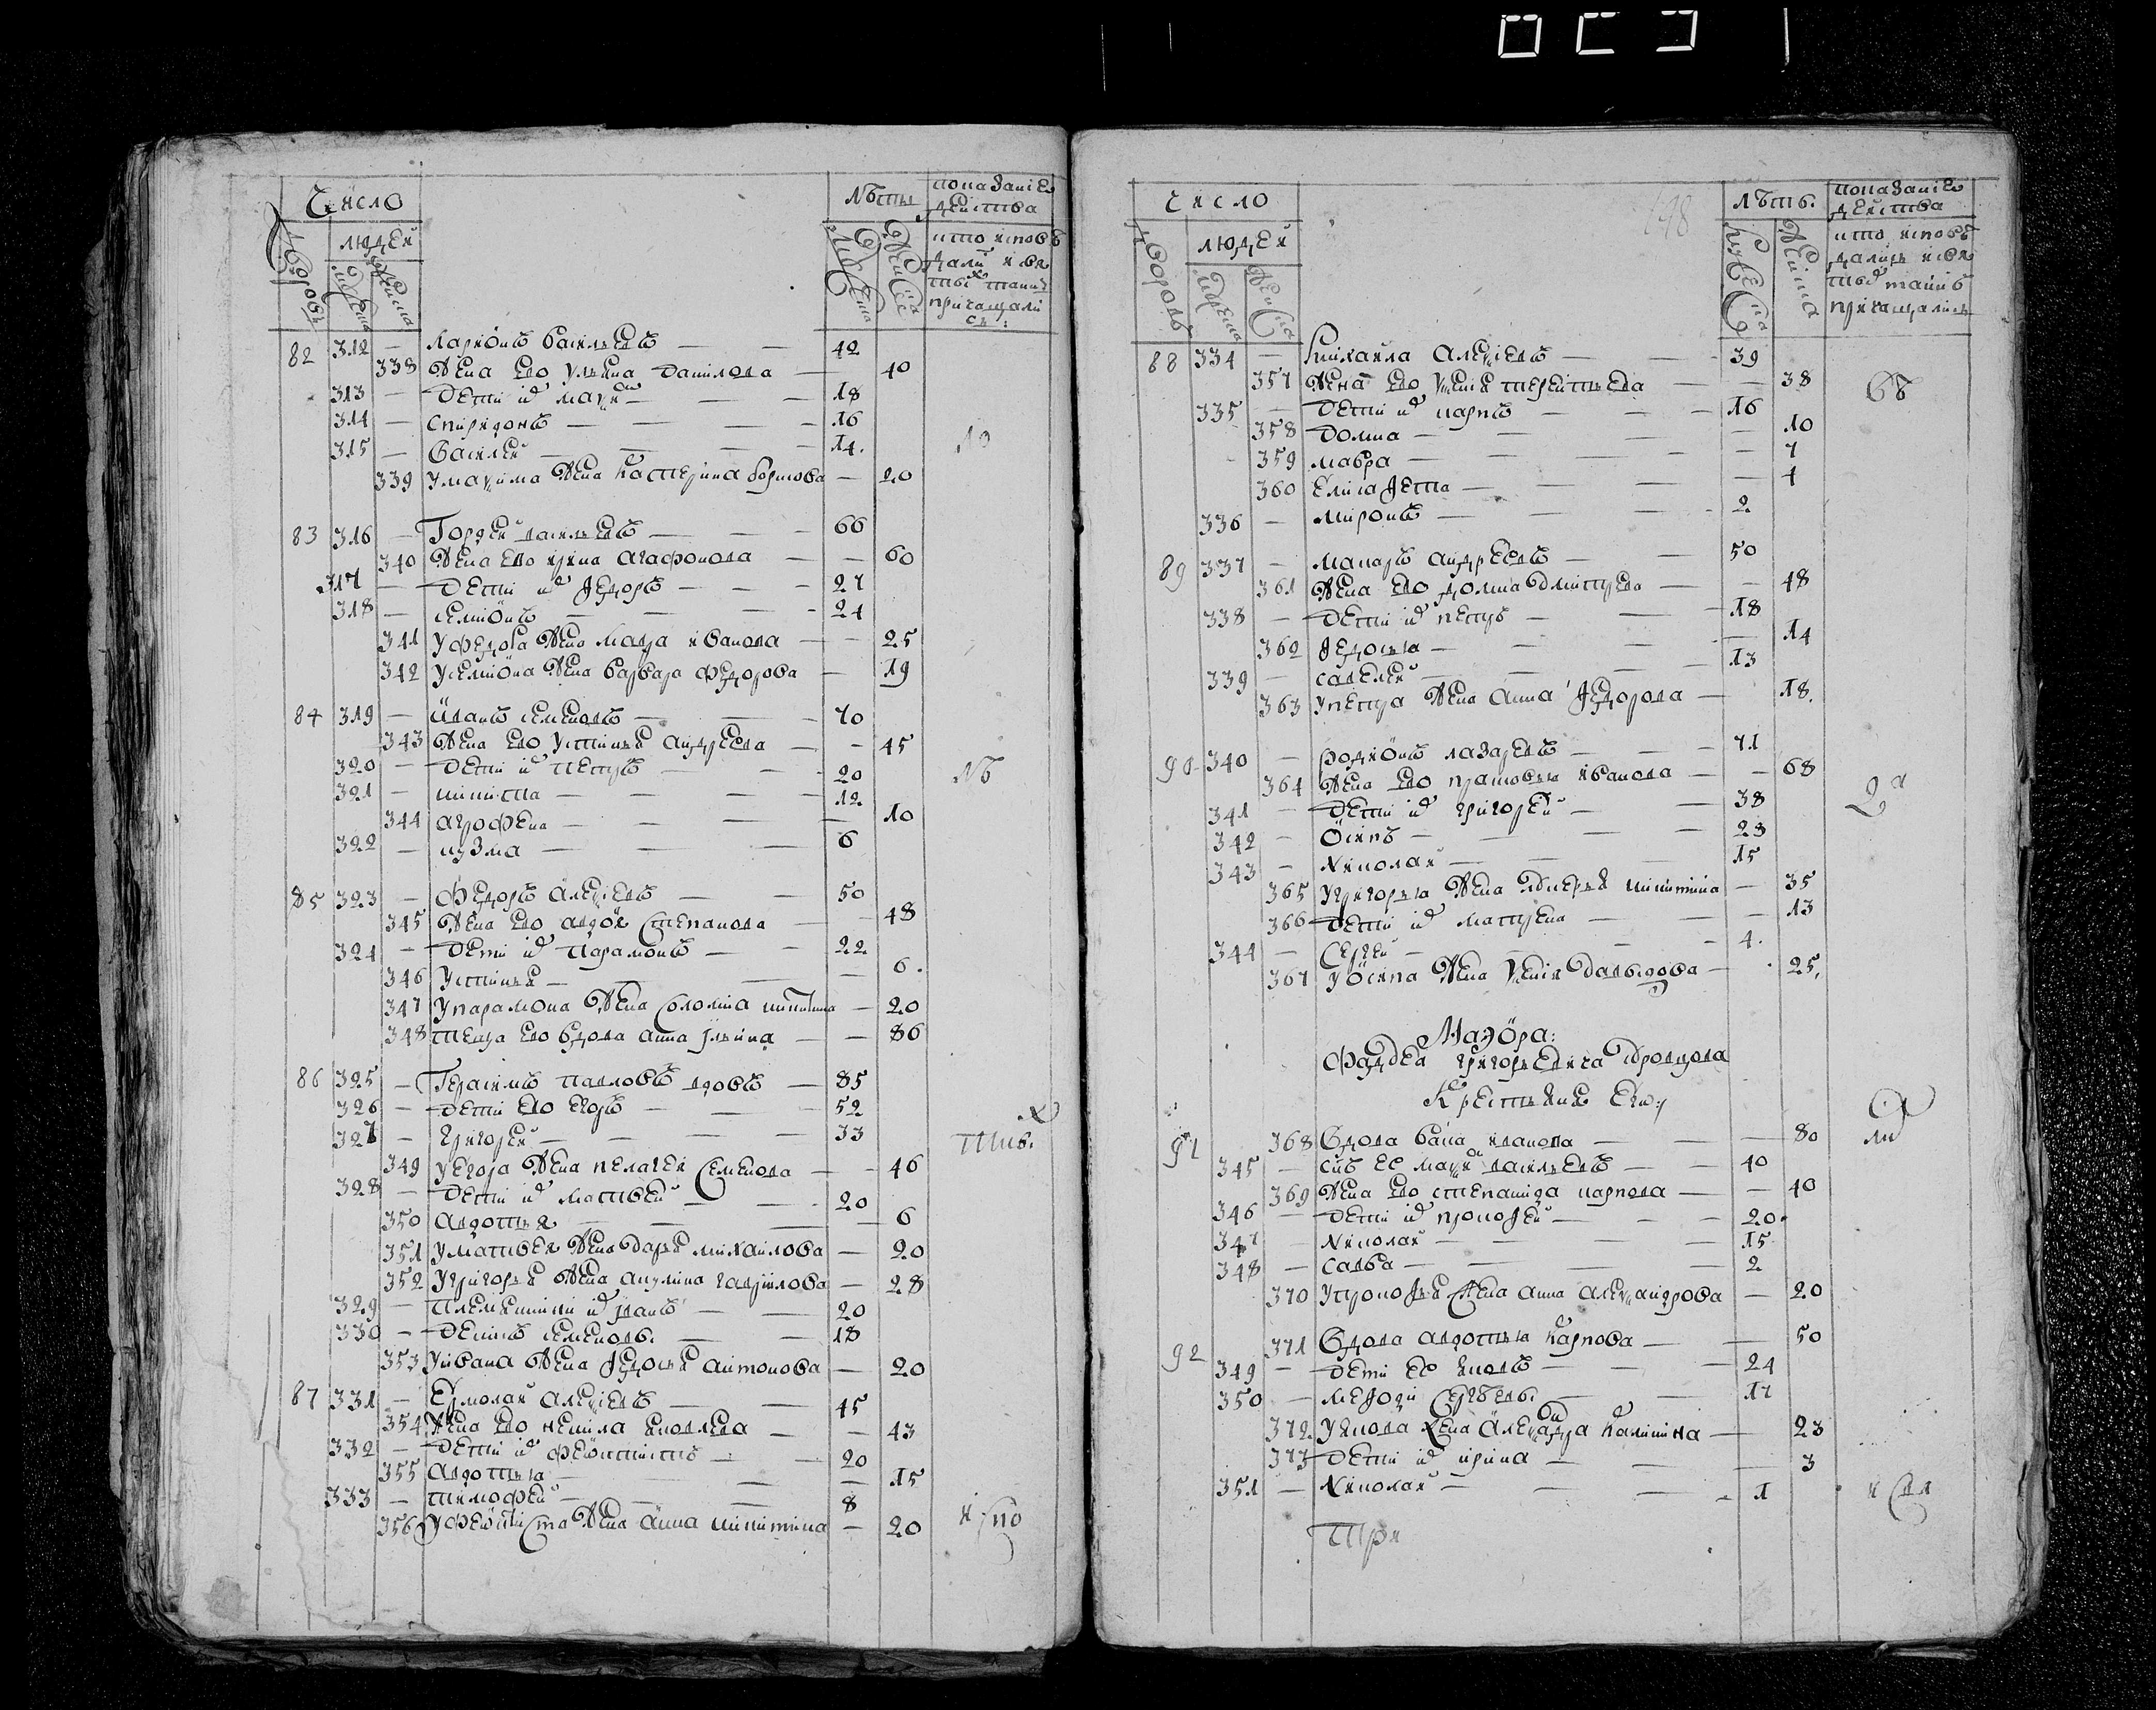 Число
лѣты
показаніе
действа
людей
кто исповѣ
дали и свя
тых таинъ
причащали
сь:
дворовъ
мужеска
женска
мужеска
женска
82 312 — Ларионъ васильевъ — 42
338 жена ево ульяна данилова — 40
313 — дети их — 18
314 — спиридонъ — 16
315 — василей — 14.
339 жена катерина — 20
83 316 — Гордей васильевъ — 66
340 жена ево ирина агафонова — 60
317 — дети их ѳедоръ — 27
318 — семионъ — 24
341 уфедора жена мавра иванова — 25
342 усемиона жена варвара федорова — 19
84 319 — иванъ семеновъ — 70
343 жена ево устинья андреева — 45
320 — дети их петръ — 20
321 — никита — 12
344 агрофена — 10
322 — кузма — 6
85 323 — Федоръ алексіевъ — 50
345 жена ево авдотя степанова — 48
324 — дети их парамонъ — 22
346 устинья — 6.
347 упарамона жена соломия никитина — 20
348 теща ево вдова анна ильина — 86
86 325 — Герасимъ павловъ вдовъ — 85
326 — дети ево егоръ — 52
327 — григорей — 33
349 уегора жена пелагея семенова — 46
328 — дети их матвей — 20
350 авдотья — 6
351 уматвея жена дарья михаилова — 20
352 угригорья жена акулина гаврилова — 28
329 — племянники их иванъ — 20
330 — денисъ семеновы. — 18
353 уивана жена ѳедосья антонова — 20
87 331 — Ермолай алексіевъ — 45
354 жена ево ненила яковлева — 43
332 — дети их феоктистъ — 20
355 авдотья — 15
333 — тимофей — 8
356 уфеоктиста жена анна никитина — 20
Число
лѣтъ.
показаніе
действа
людей
кто исповѣ
дались и свя
тых таинъ
причащались
дворовъ
мужеска
женска
мужеска
женска
88 334 — михаила алексіевъ — 39
357 жена ево ксения терентьева — 38
335 — дети их карпъ — 16
358 домна — 10
359 мавра — 7
360 елисавета — 4
336 — миронъ — 2
89 337 — макаръ андреевъ — 50
361 жена ево домна дмитрева — 48
338 — дети их петръ — 18
362 ѳедосья — 14
339 — савелей — 13
363 упетра жена анна ѳедорова — 18.
90 340 — родионъ лазаревъ — 71
364 жена ево прасковья иванова — 68
341 — дети их григорей — 38
342 — осипъ — 23
343 — николай — 15
365 угригорья жена никитина — 35
366 дети их матрена — 13
344 — Сергей — 4.
367 уосипа жена ксения давыдова — 25.
Маэора:
Фаддея григорьевича
крестьяня ево:
91 368 вдова иванова — 80
345 — сынъ ее васильевъ — 40
369 жена ево степанида карпова — 40
346 — дети их прокофей — 20.
347 — николай — 15
348 — савва — 2
370 упрокофья жена анна александрова — 20
92 371 вдова авдотья карпова — 50
349 — дети ее яковъ — 24
350 — меѳодй сергѣевы. — 17
372 уякова жена александра калинина — 23
373 дети их ирина — 3
351 — николай — 1